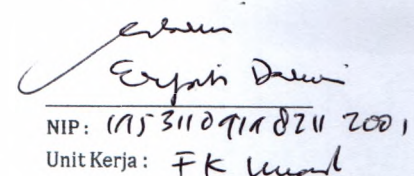 Eryati Darwin
NIP: 19531109198211 2001
Unit Kerja: FK Unand